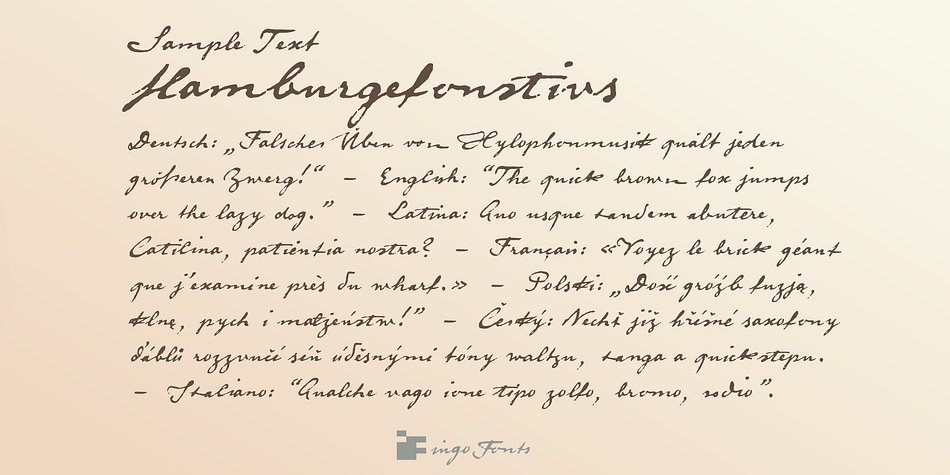 Sample Text
Hamburgefonstivs
Deutsch: „Falsches Üben von Xylophonmusik quält jeden
größeren Zwerg!“ – English: “The quick brown fox jumps
over the lazy dog.” – Latina: Quo usque tandem abutere,
Catilina, patientia nostra? – Français: «Voyez le brick géant
que j’examine près du wharf.» – Polski: „Dość gróźb fuzją,
klnę, pych i małżeństw!” – Český: Nechť již hříšné saxofony
ďáblů rozzvučí síň úděsnými tóny waltzu, tanga a quickstepu.
– Italiano: “Qualche vago ione tipo zolfo, bromo, sodio”.
ingoFonts